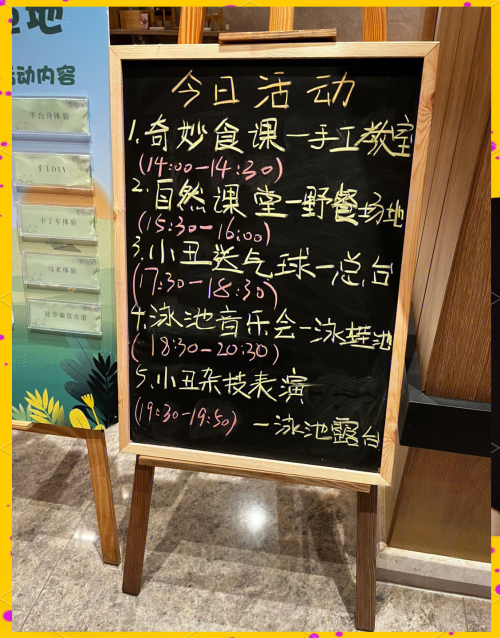 地
动内容
手工DIY
卡丁车体验
马术体验
今日活动
1.奇妙食课—手工教室
(14:00—14:30)
2.自然课堂—野餐场地
(15:30—16:00)
3.小丑送气球—总台
(17:30—18:30)
4.泳池音乐会—泳池
(18:30—20:30)
5.小丑杂技表演
(19:30-19:50) —泳池露台